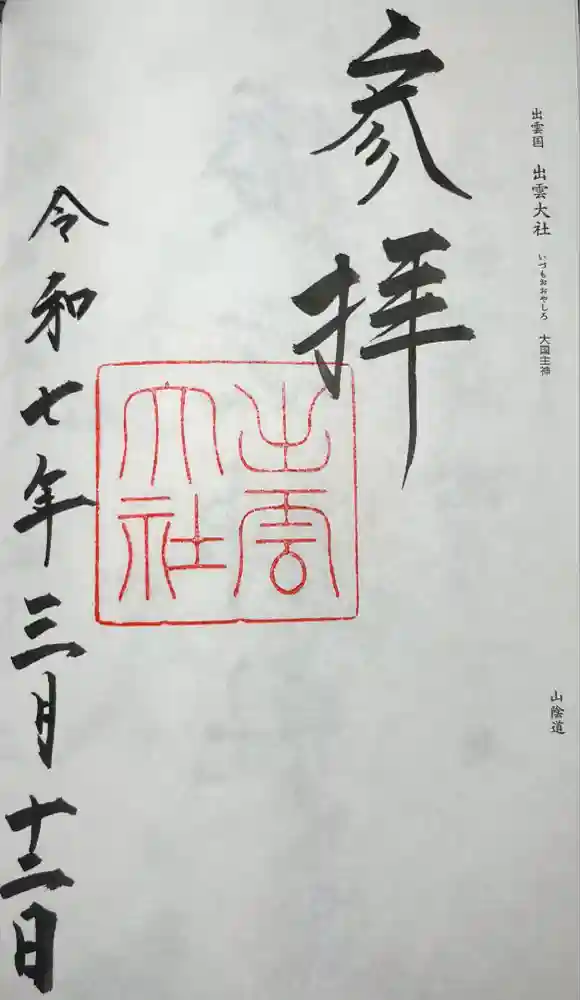 出雲国 出雲大社 いづもおおやしろ 大国主神
山陰道
参拝
出雲
大社
令和七年三月十二日